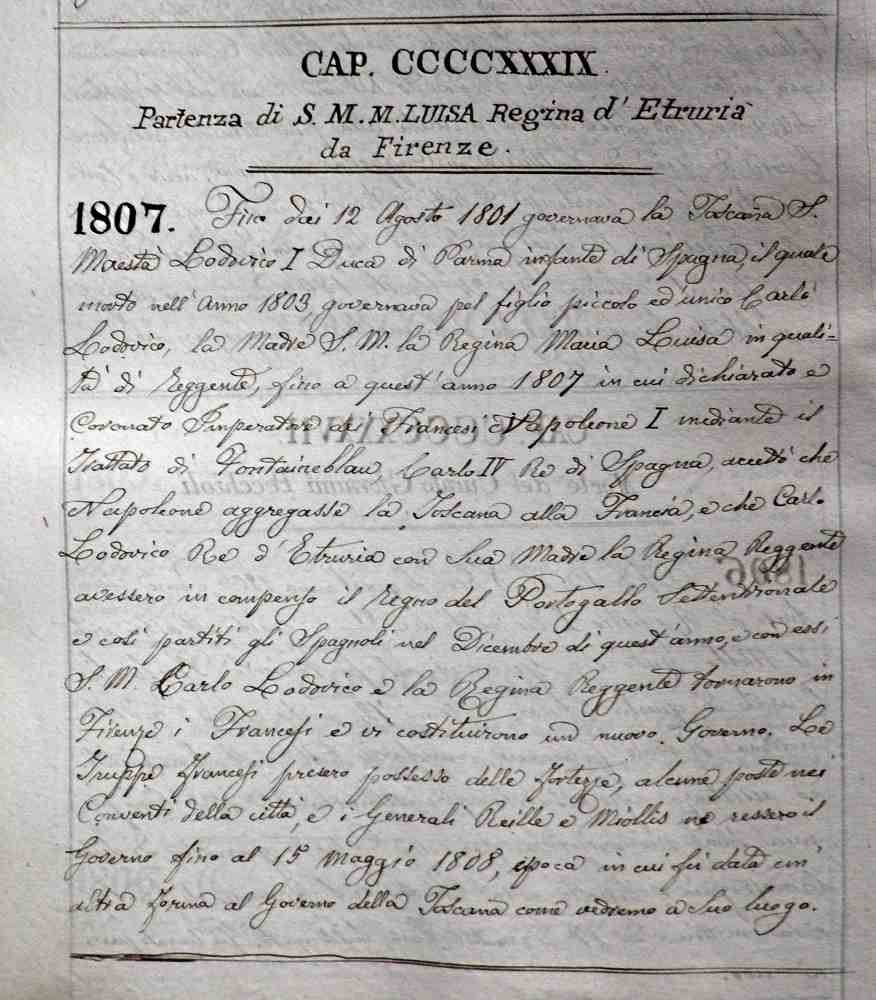 CAP. CCCCXXXIX.
Partenza di S. M. M. LUISA Regina d' Etruria
da Firenze.
1807. Fino dai 12 Agosto 1801 governava la Toscana S.
Maestà Lodovico I Duca di Parma infante di Spagna, il quale
morto nell' Anno 1803 governava pel figlio piccolo ed unico Carlo
Lodovico, la Madre S. M. la Regina Maria Luisa in quali-
tà di Reggente, fino a quest' anno 1807 in cui dichiarato e
Coronato Imperatore dei Francesi Napoleone I mediante il
Trattato di Fontaineblau, Carlo IV Re di Spagna, accettò che
Napoleone aggregasse la Toscana alla Francia, e che Carlo
Lodovico Re d' Etruria con Sua Madre la Regina Reggente
avessero in compenso il regno del Portogallo Settentrionale
e così partiti gli Spagnoli nel Dicembre di quest' anno, e con essi
S. M. Carlo Lodovico e la Regina Reggente tornarono in
Firenze i Francesi e vi costituirono un nuovo Governo. Le
Truppe francesi presero possesso delle fortezze, alcune poste nei
Conventi della città, e i Generali Reille e Miollis ne ressero il
Governo fino al 15 Maggio 1808, epoca in cui fù data un'
altra forma al Governo della Toscana come vedremo a suo luogo.